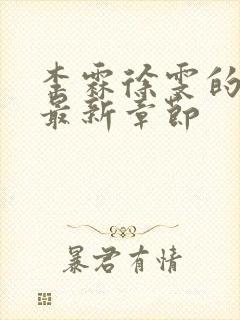 李霖徐雯的
最新章节
暴君有情